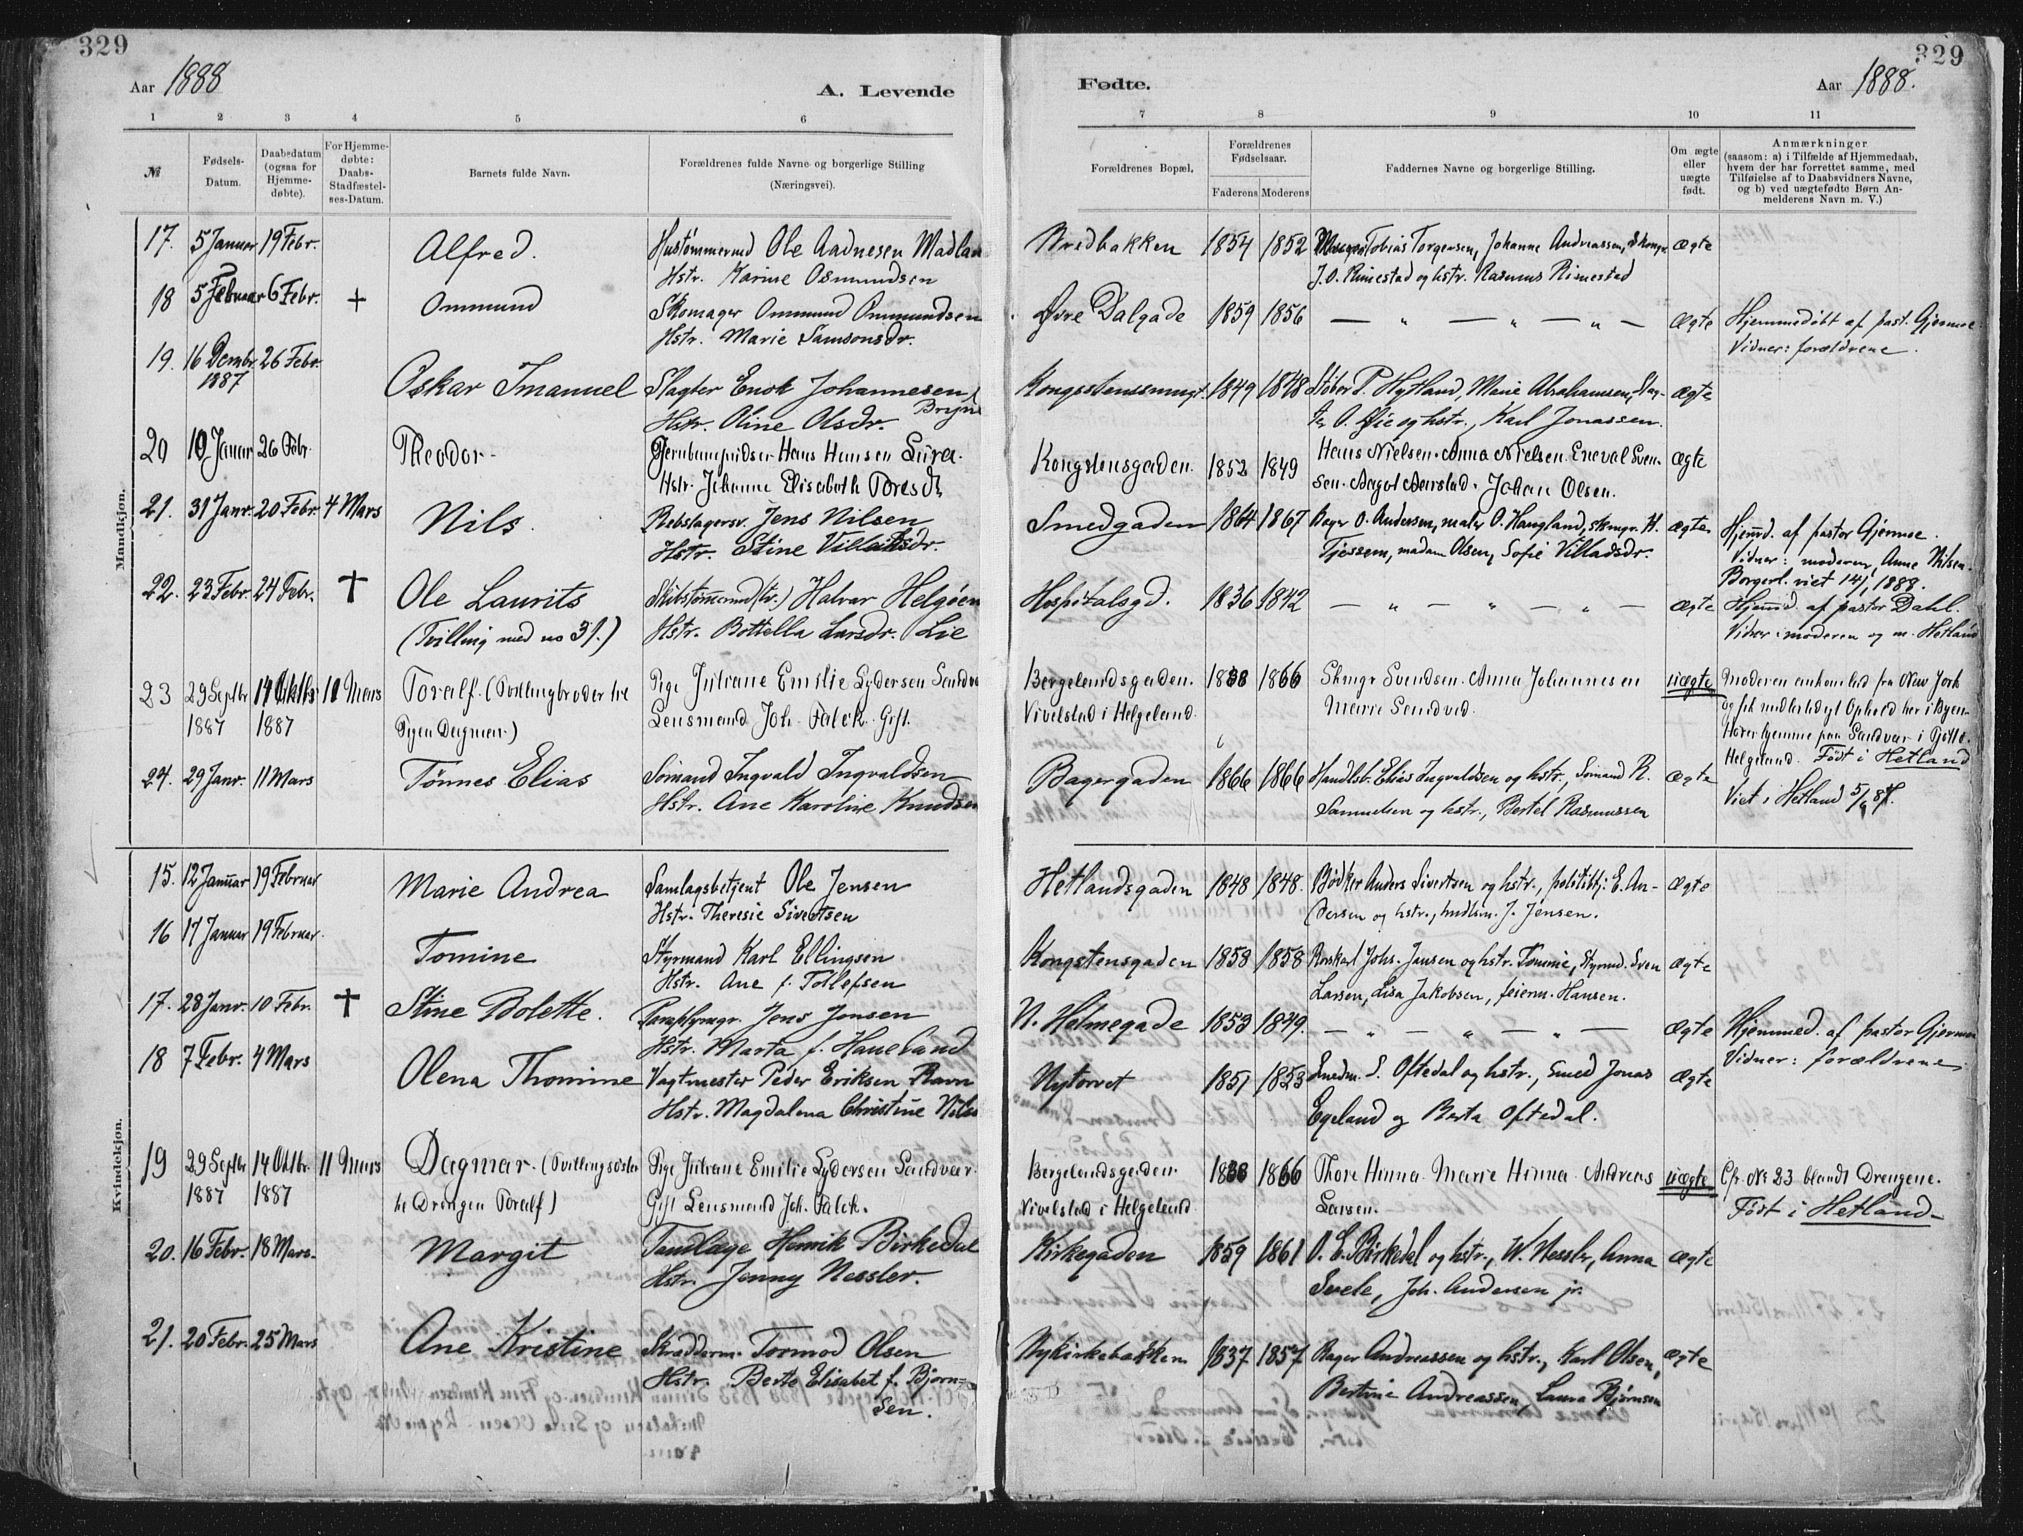 329
Aar 1888
A. Levende
1 2 3 4 5 6
№
Fødsels-
Datum.
Daabsdatum
(ogsaa for
Hjemme-
døbte).
For Hjemme-
døbte:
Daabs-
Stadfæstel-
ses-Datum.
Barnets fulde Navn.
Forældrenes fulde Navne og borgerlige Stilling
(Næringsvei).
Mandkjøn.
17. 5 Januar 19 Febr. Alfred. Hustømmermd Ole Aadnesen Madlan
Hstr. Karine Osmundsen
18 5 Februar 6 Febr. + Ommund Skomager Ommund Ommundsen
Hstr. Marie Samsonsdr.
19. 16 Decmbr 26 Febr. Oskar Imanuel Slagter Enok Johannesen
1887 Bryne
Hstr. Oline Olsdr.
20 10 Januar 26 Febr. Theodor Hans Hansen Lura.
Hstr. Johanne Elisabeth Toresdr
21. 31 Janr. 20 Febr. 4 Mars Nils. Rebslagersv. Jens Nilsen
Hstr. Stine Villadsdr.
22. 23 Febr. 24 Febr. † Ole Laurits Skibstømrmd (Gr.) Halvar Helgøen
(Tvilling med no 31.) Hstr. Bottella Larsdr. Lie
23 29 Septbr 14 Oktbr 11 Mars Toralf. (Tvillingbroder til Pige Julrane Emilie Lydersen Sandvær
1887 1887 Pigen Dagmar.) Lensmand Joh. Falck. Gift.
24. 29 Janr. 11 Mars Tønnes Elias Sømand Ingvald Ingvaldsen
Hstr. Ane Karoline Knudsen
Kvindekjøn.
15. 12 Januar 19 Februar Marie Andrea Samlagsbetjent Ole Jensen
Hstr. Theresie Sivertsen
16 17 Januar 19 Februar. Tomine Styrmand Karl Ellingsen
Hstr. Ane f. Tollefsen
17. 28 Janr. 10 Febr. † Stine Bolette. Paraplymgr. Jens Jensen
Hstr. Marta f. Haneland
18 7 Febr. 4 Mars Olena Thomine Vagtmester Peder Eriksen Ravn
Hstr. Magdalena Christine Nils
19 29 Septbr 14 Oktbr. 11 Mars Dagmar. (Tvillingsøster Pige Julrane Emilie Lydersen Sandvær.
1887 1887 til Drengen Toralf) Gift Lensmand Joh. Falck.
20. 16 Febr. 18 Mars. Margit Tandlæge Henrik Birkedal
Hstr. Jenny Nessler.
21. 20 Febr. 25 Mars Ane Kristine Skrædderm. Tormod Olsen
Hstr. Berte Elisabet f. Bjørn-
sen.
329
Fødte.
Aar 1888.
7 8 9 10 11
Forældrenes Bopæl.
Forældrenes
Fødselsaar.
Faderens Moderens
Faddernes Navne og borgerlige Stilling.
Om ægte
eller
uægte
født.
Anmærkninger
(saasom: a) i Tilfælde af Hjemmedaab,
hvem der har forrettet samme, med
Tilføielse af to Daabsvidners Navne,
og b) ved uægtefødte Børn An-
melderens Navn m. V.)
Bredbakken 1854 1852 Tobias Torgersen, Johanne Andreassen, ægte
J. O. Rimestad og hstr. Rasmus Rimestad
Øvre Dalgade 1859 1856 — „ — „ — „ — Ægte Hjemmedøbt af past. Gjermoe
Vidner: forældrene.
1849 1848 Støber P. Hytland, Marie Abrahamsen, Slag- ægte
ter O. Øie og hstr., Karl Jonassen.
Kongstensgaden. 1852 1849 Hans Nielsen. Anna Nielsen. Eneval Sven- ægte
sen. Aagot Aarstad. Johan Olsen.
Smedgaden 1864 1867 Bager O. Andersen, maler O. Haugland, skmgr. H. ægte
Tjessem, madam Olsen, Sofie Villadsdr.
Hjemd. af pastor Gjermoe.
Vidner: moderen, Anne Nilsen.
Borgerl. viet 14/1 1888.
Hospitalsgd. 1836 1842 — „ — „ — „ — ægte Hjemd. af pastor Dahl.
Vidner: moderen og m. Hetland
Bergelandsgaden. 1838 1866 Skmgr Svendsen. Anna Johannesen uægte Moderen ankommet fra New York
Vivelstad i Helgeland. Marie Sandved. og fik midlertidigt Ophold her i Byen.
Hører hjemme paa Sandvær i
Helgeland. Født i Hetland
Bagergaden 1866 1866 Handlsb. Elias Ingvaldsen og hstr., Sømand R. ægte
Samuelsen og hstr., Bertel Rasmussen Viet i Hetland 5/6 87.
Hetlandsgaden 1848 1848. Bødker Anders Sivertsen og hstr., politibtj. E. An- ægte
dersen og hstr., hndlsm. J. Jensen.
Kongstensgaden 1858 1858 Johs. Jansen og hstr. Tomine, Styrmd. Sven ægte
Larsen, Lisa Jakobsen, feierm. Hansen.
N. Holmegade 1853 1849. — „ — „ — „ — ægte Hjemmed. af pastor Gjermoe
Vidner: forældrene
Nytorvet 1851 1853 Smedm. S. Oftedal og hstr., Smed Jonas ægte
Egeland og Berta Oftedal.
Bergelandsgaden. 1838 1866 Thore Hinna. Marie Hinna. Andreas uægte Cfr. No 23 blandt Drengene.
Vivelstad i Helgeland Larsen. Født i Hetland
Kirkegaden 1859 1861 O. E. Birkedal og hstr., W. Nessler, Anna ægte
Svele, Joh. Andersen jr.
Nykirkebakken 1837 1857 Bager Andreassen og hstr., Karl Olsen, ægte
Bertine Andreassen, Laura Bjørnsen